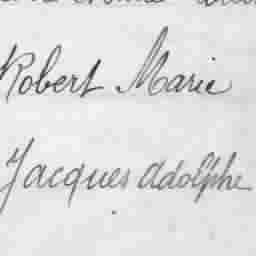 Robert Marie
Jacques Adolphe